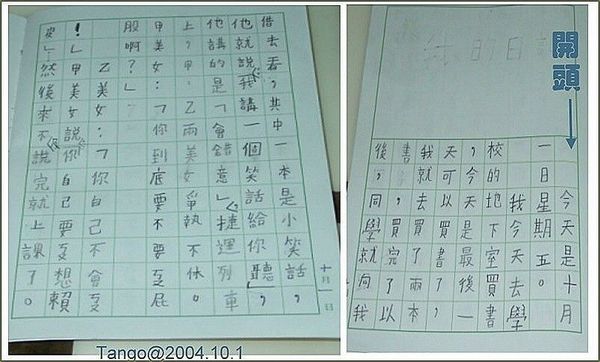 開頭
的日
今天是十月
一日星期五。
我今天去學
校的地下室買書
,今天是最後一
天可以買書了,
我就去買了兩本
書,買完了以
後,同學就向我
借去看,共中一本是小笑話,
他就說我講一個笑話給你聽」,
他講的是「會錯意」捷運列車
上,甲乙兩美女爭執不休。
甲美女:「你到底要不要屁
股啊?」
乙美女:「你自己不會
!」甲美女說:你自己要想賴
」然後來不說完就上課了。
十月一日
Tango@2004.10.1